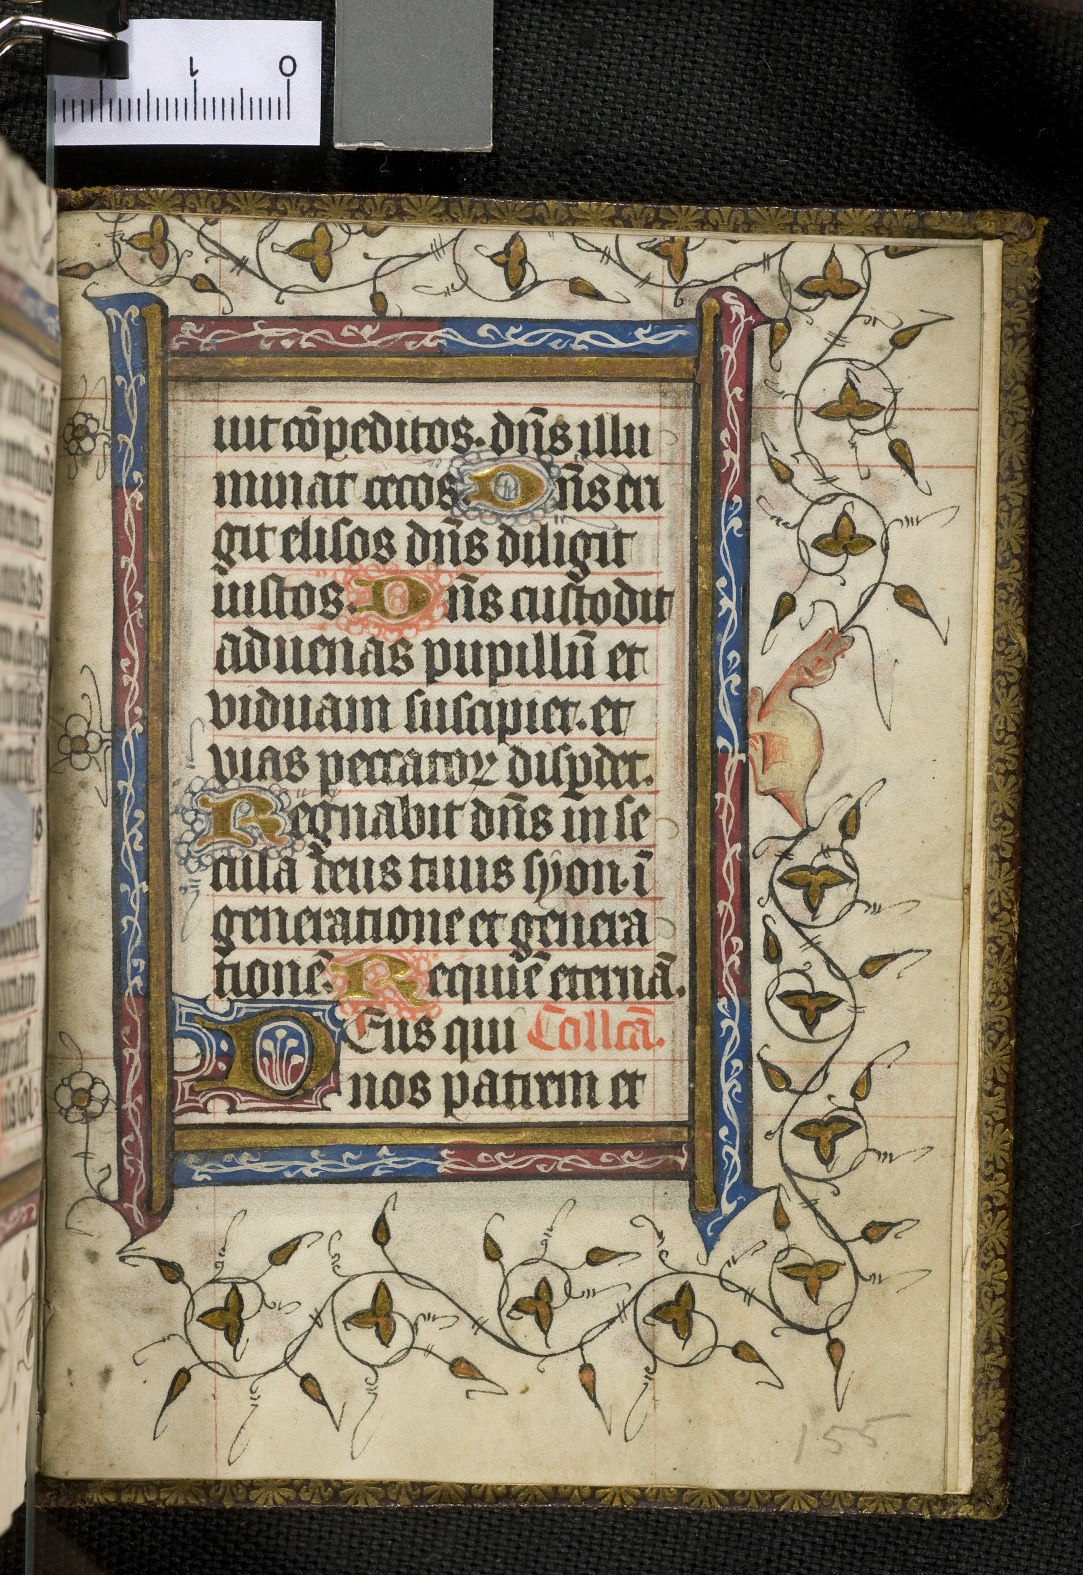 1 0
uit cōpeditos. dn̄s illu
minat cecos Dn̄s eri
git elisos dn̄s diligit
iustos. Dn̄s custodit
aduenas pupillū et
viduam suscipiet. et
vias peccatoꝝ disꝑdet.
Regnabit dn̄s in se
cula deus tuus syon. ī
generatione et genera
tionē. Requiē eternā.
Deus qui Collcā.
nos patrem et
155